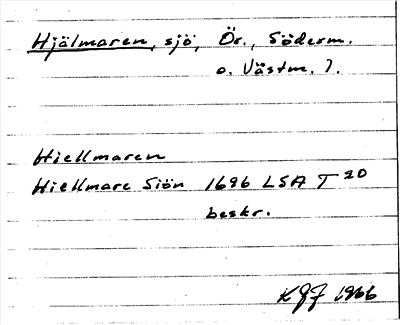 Hjälmaren, sjö, Ör., Söderm.
o. Västm. l.
Hiellmaren
Hiellmare Siön 1696 LSA T 20
beskr.
KGF 1966